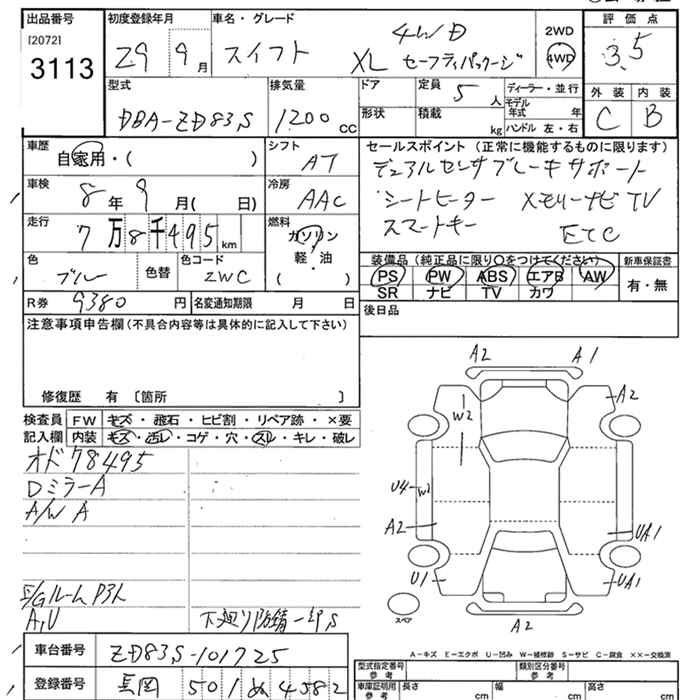 出品番号 初度登録年月 車名・グレード 評価点
[2072] 3113
29 9月 スイフト XL 4WD セーフティパッケージ 2WD 4WD 3.5
型式 排気量 ドア 定員 5人 ディーラー・並行 外装 内装
DBA-ZD83S 1200cc 形状 積載 kg モデル年式 年 ハンドル 左・右 C B
車歴 自家用・( ) シフト AT セールスポイント (正常に機能するものに限ります)
デュアルセンサブレーキサポート
車検 8年9月( 日) 冷房 AAC シートヒーター メモリーナビ TV
走行 7万8千495km 燃料 ガソリン 軽・油 ( ) スマートキー ETC
色 ブルー 色替 色コード ZWC 装備品 (純正品に限り○をつけてください) 新車保証書
PS PW ABS エアB AW 有・無
SR ナビ TV カワ
R券 9380円 名変通知期限 月 日 後日品
注意事項申告欄 (不具合内容等は具体的に記入して下さい)
修復歴 有 〔箇所 〕
検査員記入欄 FW キズ・飛石・ヒビ割・リペア跡・×要
内装 キズ・汚レ・コゲ・穴・スレ・キレ・破レ
オド78495
DミラーA
A/W A
E/Gルーム P3人
A,U 下廻り防錆一部S
A2 A1
A2
W2
U4 W2
A2 UA1
U1 UA1
A2
スペア
A-キズ E-エクボ U-凹み W-補修跡 S-サビ C-腐食 ××-交換済
車台番号 ZD83S-101725
登録番号 長岡 501 ぬ 4582
型式指定番号 参考 類別区分番号 参考
車庫証明用 参考 長さ cm 幅 cm 高さ cm